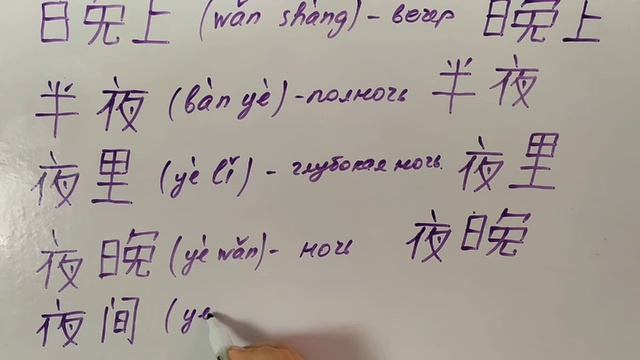 晚上 (wǎn shàng) - вечер 晚上
半夜 (bàn yè) - полночь 半夜
夜里 (yè lǐ) - глубокая ночь. 夜里
夜晚 (yè wǎn) - ночь 夜晚
夜间 (ye